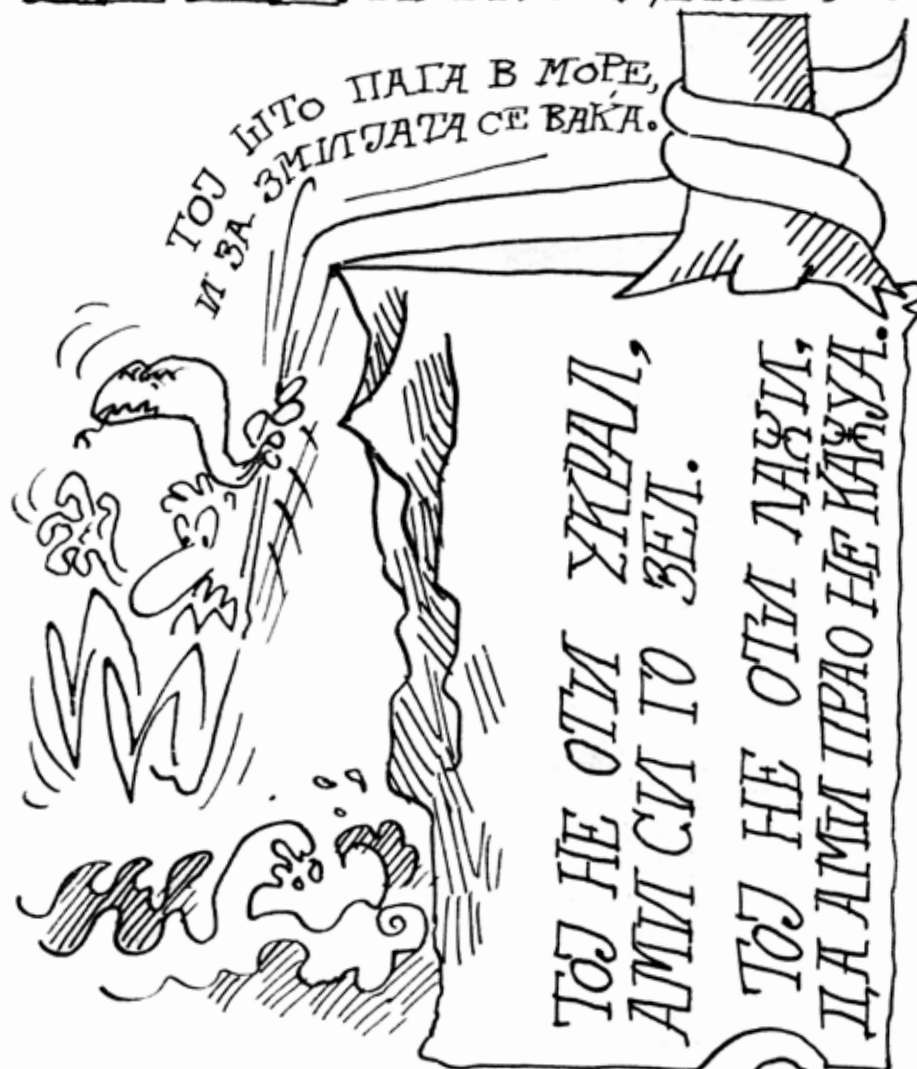 ТОЈ ШТО ПАГА В МОРЕ,
И ЗА ЗМИЈАТА СЕ ВАЌА.
ТОЈ НЕ ОТИ УКРАЛ,
АМИ СИ ГО ЗЕЛ.
ТОЈ НЕ ОТИ ЛАЖИ,
ДА АМИ ПРАО НЕ КАЖУА.